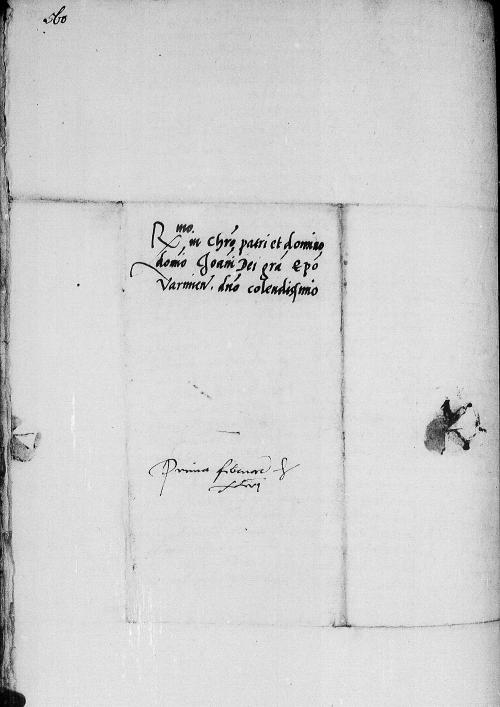 Rmo. in Chro patri et domino
domio Joani Dei gra Epo
Varmien. dno colendissimo
Prima